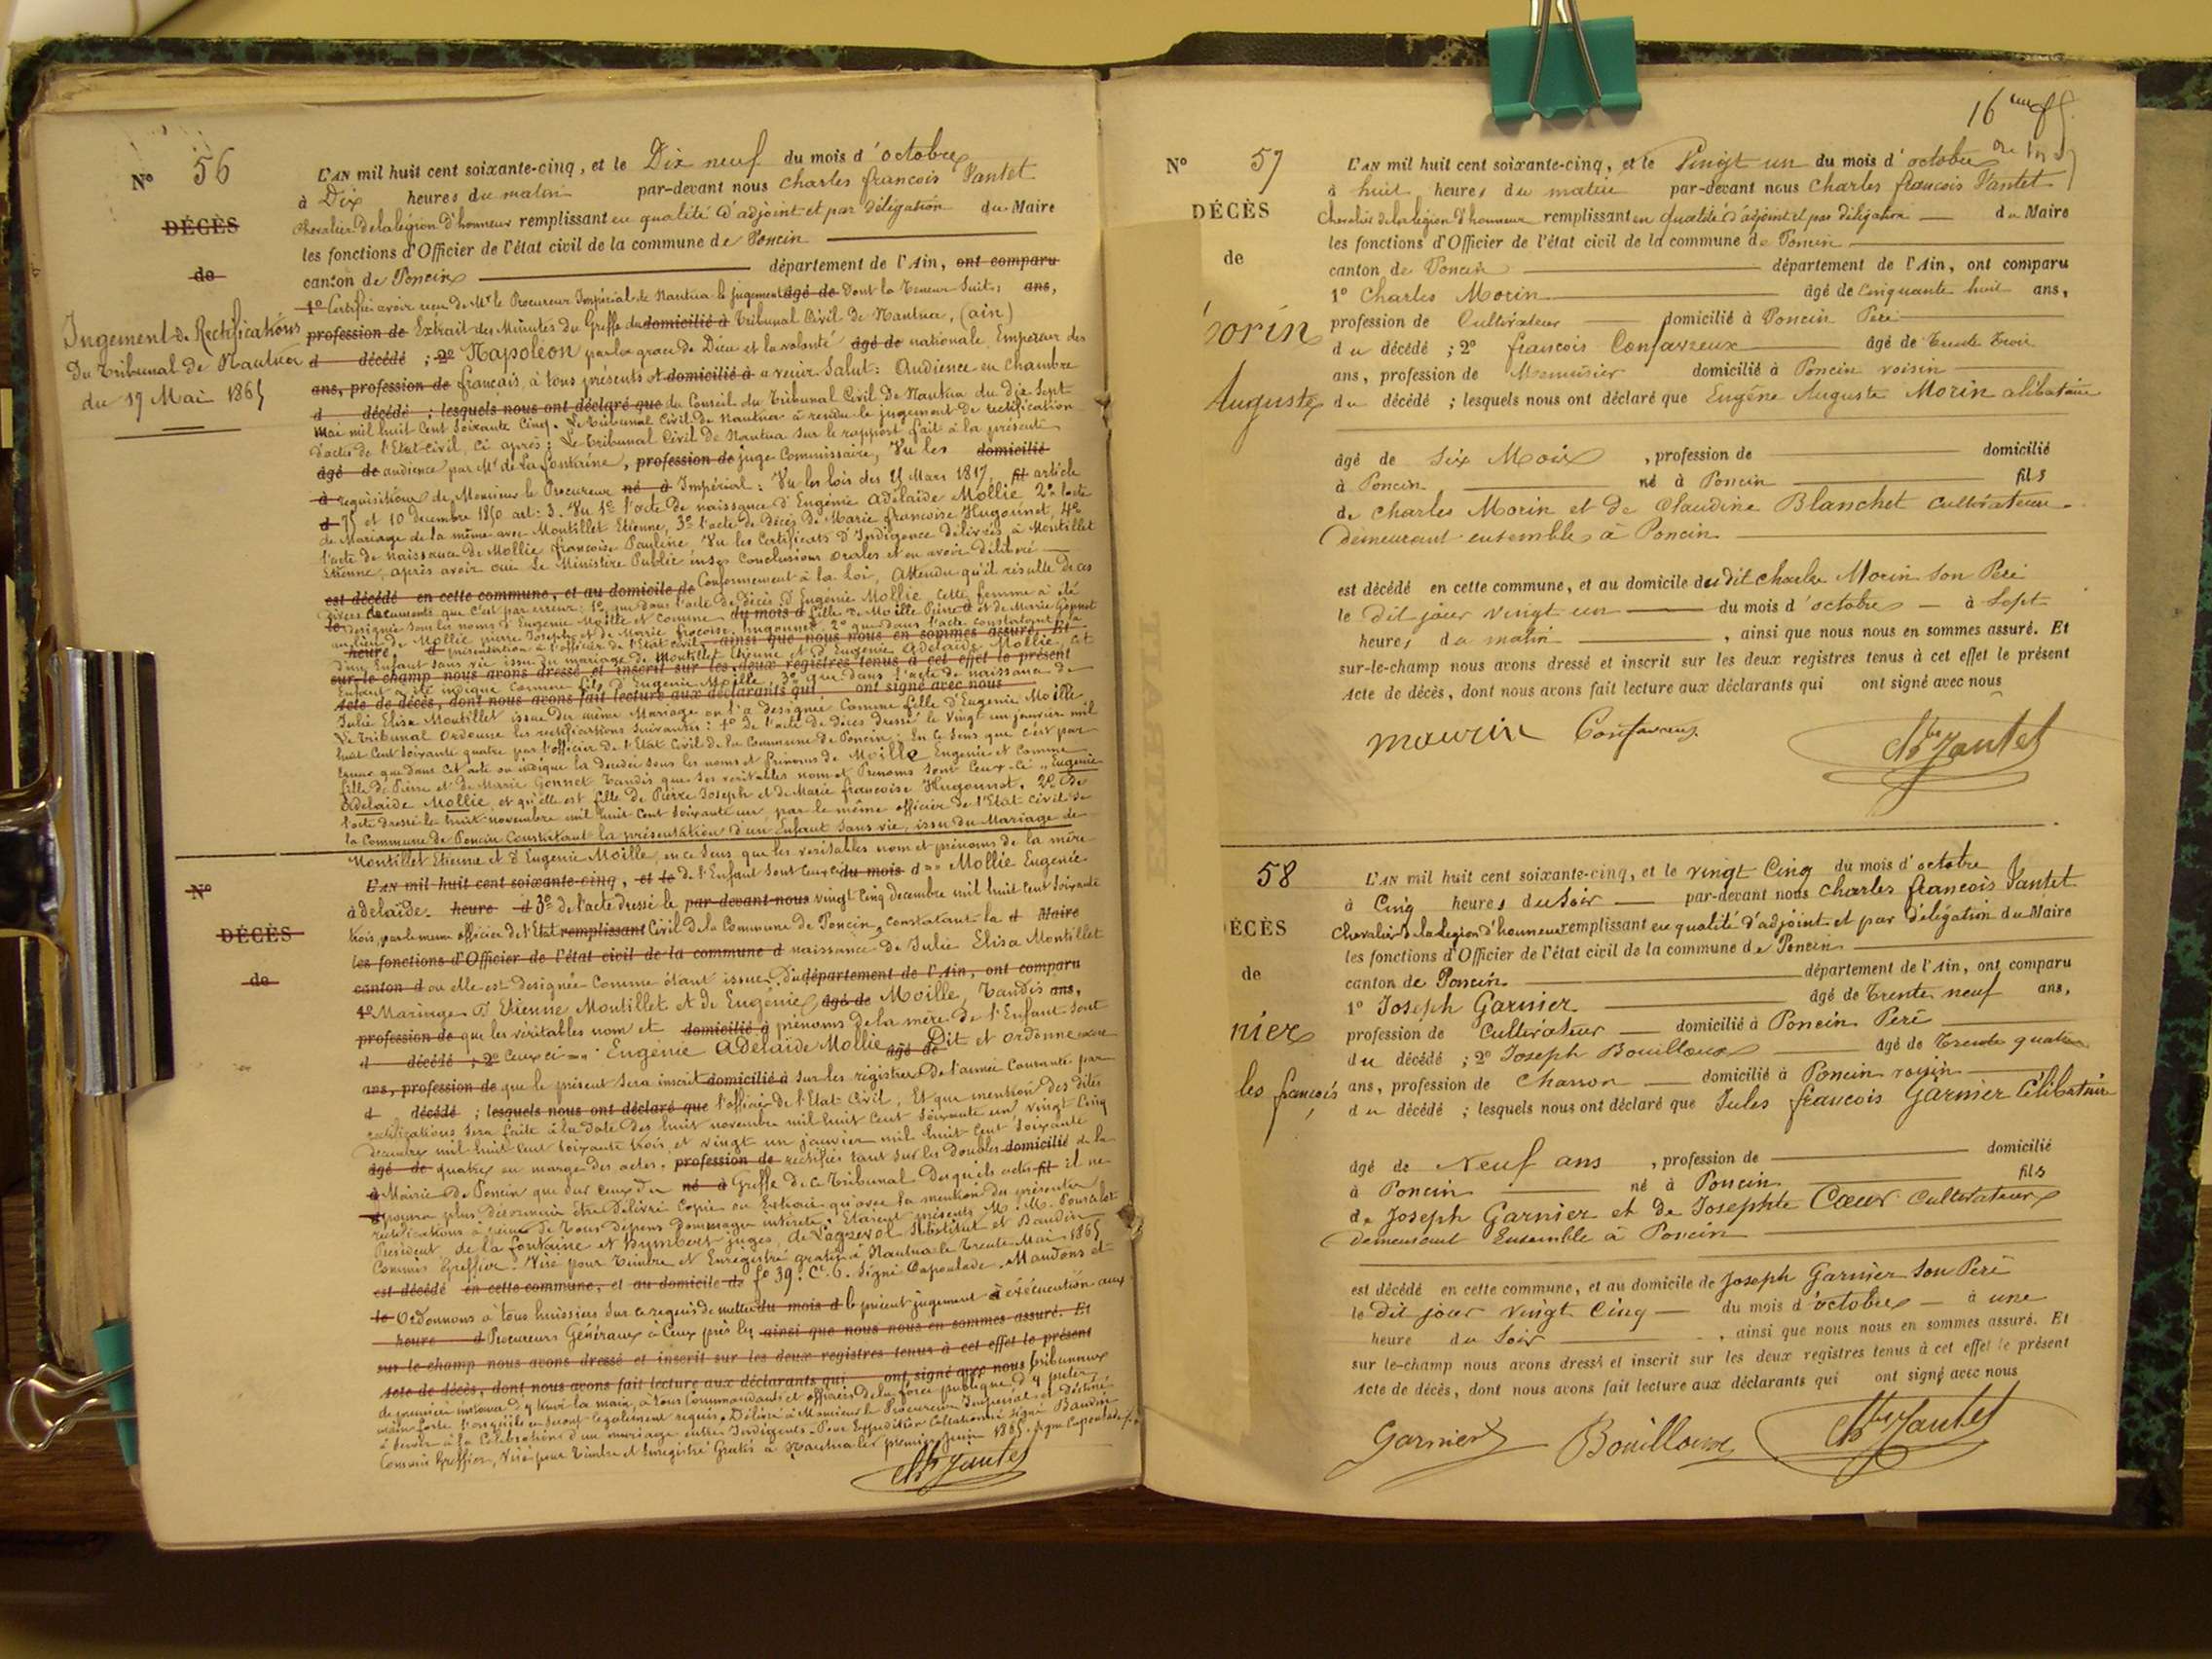 N° 56
DÉCÈS
de
Jugement de Rectifications
du Tribunal de Nantua
du 17 Mai 1865
L'AN mil huit cent soixante-cinq, et le Dix neuf du mois d'octobre
à Dix heures du matin par-devant nous Charles françois Vantet
chevalier de la légion d'honneur remplissant en qualité d'adjoint et par déligation du Maire
les fonctions d'Officier de l'état civil de la commune de Poncin
canton de Poncin département de l'Ain, ont comparu
1° Certifie avoir reçu de Mr le Procureur Impérial de Nantua le jugement âgé de Dont la Teneur Suit: ans,
profession de Extrait des Minutes du Greffe du domicilié à Tribunal Civil de Nantua, (ain)
d décédé ; 2° Napoléon par la grace de Dieu et la volonté âgé de nationale, Empereur des
ans, profession de français, à tous présents et domicilié à a venir Salut: Audience en Chambre
d décédé ; lesquels nous ont déclaré que du Conseil du Tribunal Civil de Nantua du dix Sept
Mai mil huit Cent Soixante Cinq. Le Tribunal Civil de Nantua à rendu le jugement de rectification
d'actes de l'Etat-civil, ci après: Le Tribunal Civil de Nantua sur le rapport fait à la présente
âgé de audience par Mr de la fontaine, profession de juge Commissaire, Vu les domicilié
à requisitions de Monsieur le Procureur né à Impérial: Vu les lois des Mars 1817, fil article
d 75 et 10 decembre 1850 art: 3. Vu 1° l'acte de naissance d'Eugénie Adélaïde Mollie 2° l'acte
de Mariage de la même avec Montillet Etienne, 3° l'acte de décès de Marie françoise Hugonnet, 4°
l'acte de naissance de Mollie françoise Pauline Vu les Certificats d'Indigence délivrés à Montillet
Etienne, après avoir oui le Ministère Public en ses Conclusions orales et en avoir délibéré
est décédé en cette commune, et au domicile de Conformement à la loi, Attendu qu'il résulte de ces
divers documents que c'est par erreur: 1° que dans l'acte de décès d'Eugénie Mollie, cette femme à été
le designée sous les noms d'Eugenie Moille et comme du mois d fille de Moille Pierre et de Marie Gonnet
au lieu de Mollie pierre Joseph et de Marie françoise hugonnet, 2° que dans l'acte constatant la
heure, d présentation à l'officier de l'Etat civil, ainsi que nous nous en sommes assuré. Et
d'un Enfant sans vie issu du mariage de Montillet Etienne et d'Eugenie Adelaide Mollie, cet
sur-le-champ nous avons dressé et inscrit sur les deux registres tenus à cet effet le présent
Enfant a été indiqué comme fils d'Eugenie Moille, 3° que dans l'acte de naissance de
Acte de décès, dont nous avons fait lecture aux déclarants qui ont signé avec nous
Julie Elisa Montillet issue du même Mariage on l'a designée Comme fille d'Eugenie Moille
Le Tribunal Ordonne les rectifications Suivantes: 1° de l'acte de décès dressé le vingt un janvier mil
huit Cent Soixante quatre par l'officier de l'Etat Civil de la Commune de Poncin: En ce Sens que c'est par
Erreur que dans cet acte on indique la decedée sous les noms et prénoms de Moille Eugenie et Comme
fille de Pierre et de Marie Gonnet Tandis que ses veritables nom et Prenoms sont Ceux-ci „ Eugénie
Adelaïde Mollie, et qu'elle est fille de Pierre Joseph et de Marie françoise Hugonnet, 2° De
l'acte dressé le huit novembre mil huit Cent Soixante un, par le même officier de l'Etat civil de
la Commune de Poncin Constatant la présentation d'un Enfant Sans vie, issu du Mariage de
Montillet Etienne et d'Eugenie Moille, en ce Sens que les veritables nom et prénoms de la mère
N°
DÉCÈS
de
L'AN mil huit cent soixante-cinq, et le de l'Enfant Sont Ceux ci du mois d Mollie Eugenie
à adelaïde. heure d 3° de l'acte dressé le par-devant nous vingt cinq decembre mil huit Cent Soixante
trois, par le meme officier de l'Etat remplissant Civil de la Commune de Poncin, Constatant la d Maire
les fonctions d'Officier de l'état civil de la commune d naissance de Julie Elisa Montillet
canton d ou elle est designée Comme étant issue du département de l'Ain, ont comparu
1° Mariage d'Etienne Montillet et de Eugénie âgé de Moille, Tandis ans,
profession de que les véritables nom et domicilié à prénoms de la mère de l'Enfant Sont
d décédé ; 2° Ceux ci Eugénie Adelaïde Mollie âgé de Dit et ordonne
ans, profession de que le présent Sera inscrit domicilié à sur les registres de l'année Courante par
d décédé ; lesquels nous ont déclaré que l'officier de l'Etat Civil, Et que mention des dites
rectifications sera faite à la date des huit novembre mil huit Cent Soixante un, vingt Cinq
Decembre mil huit Cent Soixante trois et vingt un janvier mil huit Cent Soixante
âgé de quatre en marge des actes, profession de rectifiés tant sur les Doubles domicilié de la
à Mairie de Poncin que Sur Ceux du né à Greffe de ce Tribunal desquels actes fil il ne
d pourra plus désormais être délivré Copie ou Extrait qu'avec la mention des présentes
rectifications à peine de Tous Dépens Dommages intérêts. Etaient présents M.M.
President, de la fontaine et Humbert juges, de Lagrevol Substitut et Baudin
Commis Greffier. Visé pour Timbre et Enregistré gratis à Nantua le Trente Mai 1865
est décédé en cette commune, et au domicile de f° 39. C. 6. Signé Capoulade. Mandons et
le Ordonnons à tous huissiers Sur ce requis de mettre du mois d le présent jugement à éxécution aux
heure d Procureurs Généraux à Ceux près les ainsi que nous nous en sommes assuré. Et
sur-le-champ nous avons dressé et inscrit sur les deux registres tenus à cet effet le présent
Acte de décès, dont nous avons fait lecture aux déclarants qui ont signé avec nous Tribunaux
de première instance d'y tenir la main, à tous Commandants et officiers de la force publique d'y preter
main forte lorsqu'ils en seront légalement requis. Délivré à Monsieur le Procureur Impérial et destiné
à servir à la Célébration d'un mariage entre Indigents. Pour Expedition Collationné signé Baudin
Commis Greffier, Visé pour Timbre et Enregistré Gratis à Nantua le premier Juin 1865. Signé Capoulade
16
N° 57
DÉCÈS
de
Morin
Auguste
L'AN mil huit cent soixante-cinq, et le Vingt un du mois d'octobre
à huit heures du matin par-devant nous Charles francois Vantet
Chevalier de la légion d'honneur remplissant en qualité d'adjoint et par déligation du Maire
les fonctions d'Officier de l'état civil de la commune de Poncin
canton de Poncin département de l'Ain, ont comparu
1° Charles Morin âgé de Cinquante huit ans,
profession de Cultivateur domicilié à Poncin Peré
du décédé ; 2° francois Confavreux âgé de Trente Trois
ans, profession de Menuisier domicilié à Poncin voisin
du décédé ; lesquels nous ont déclaré que Eugéne Auguste Morin célibataire
âgé de Six Mois , profession de domicilié
à Poncin né à Poncin fils
de Charles Morin et de Claudine Blanchet Cultivateurs
Demeurant ensembles à Poncin
est décédé en cette commune, et au domicile dudit Charles Morin Son Peré
le Dit jour Vingt un du mois d'octobre à Sept
heures du matin , ainsi que nous nous en sommes assuré. Et
sur-le-champ nous avons dressé et inscrit sur les deux registres tenus à cet effet le présent
Acte de décès, dont nous avons fait lecture aux déclarants qui ont signé avec nous
maurin Confavreux
58
ÉCÈS
de
nier
les françois
L'AN mil huit cent soixante-cinq, et le vingt Cinq du mois d'octobre
à Cinq heures du Soir par-devant nous Charles francois Vantet
Chevalier de la légion d'honneur remplissant en qualité d'adjoint et par déligation du Maire
les fonctions d'Officier de l'état civil de la commune de Poncin
canton de Poncin département de l'Ain, ont comparu
1° Joseph Garnier âgé de Trente neuf ans,
profession de Cultivateur domicilié à Poncin Peré
du décédé ; 2° Joseph Bouilloux âgé de Trente quatre
ans, profession de Charron domicilié à Poncin voisin
du décédé ; lesquels nous ont déclaré que Jules françois Garnier Célibataire
âgé de Neuf ans , profession de domicilié
à Poncin né à Poncin fils
de Joseph Garnier et de Josephte Cœur Cultivateurs
demeurant Ensemble à Poncin
est décédé en cette commune, et au domicile de Joseph Garnier Son Peré
le Dit jour vingt Cinq du mois d'octobre à une
heure du Soir , ainsi que nous nous en sommes assuré. Et
sur le-champ nous avons dressé et inscrit sur les deux registres tenus à cet effet le présent
Acte de décès, dont nous avons fait lecture aux déclarants qui ont signé avec nous
Garnier Bouilloux